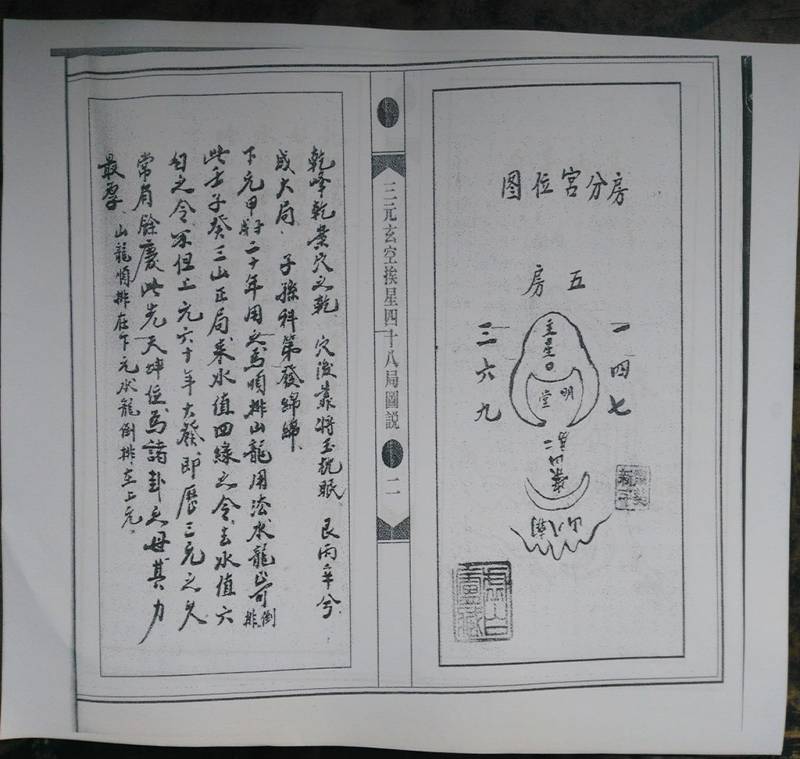 房分宫位图
五房
一四七
主星
明堂
三六九
二五八
案
三元玄空挨星四十八局圖説
二
乾峰乾崇穴之乾 穴後靠將玉枕眠 艮丙辛兮
成大局 子孫科第發綿綿
下元甲子二十年用之為順排山龍用法水龍皆可倒排
此壬子癸三山正局来水值四緑之令去水值六
白之令不但上元六十年大發即歷三元之久
常有餘慶此先天坤位為諸卦之母其力
最厚 山龍順排在下元水龍倒排在上元